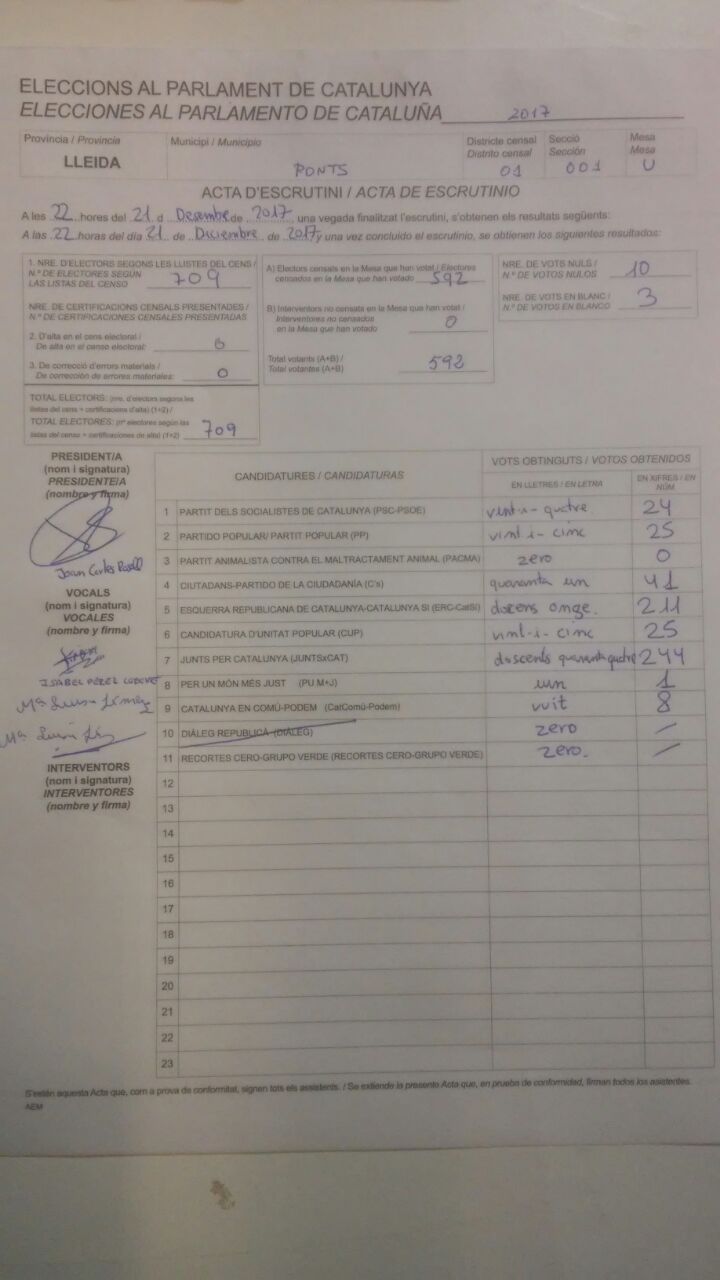 ELECCIONS AL PARLAMENT DE CATALUNYA
ELECCIONES AL PARLAMENTO DE CATALUÑA 2017
Província / Provincia
LLEIDA
Municipi / Municipio
PONTS
Districte censal
Distrito censal
01
Secció
Sección
001
Mesa
Mesa
U
ACTA D'ESCRUTINI / ACTA DE ESCRUTINIO
A les 22 hores del 21 d Desembre de 2017, una vegada finalitzat l'escrutini, s'obtenen els resultats següents:
A las 22 horas del día 21 de Diciembre de 2017 y una vez concluido el escrutinio, se obtienen los siguientes resultados:
1. NRE. D'ELECTORS SEGONS LES LLISTES DEL CENS /
N.º DE ELECTORES SEGÚN
LAS LISTAS DEL CENSO 709
NRE. DE CERTIFICACIONS CENSALS PRESENTADES /
N.º DE CERTIFICACIONES CENSALES PRESENTADAS
2. D'alta en el cens electoral /
De alta en el censo electoral: 0
3. De correcció d'errors materials /
De corrección de errores materiales: 0
TOTAL ELECTORS: (nre. d'electors segons les
llistes del cens + certificacions d'alta) (1+2) /
TOTAL ELECTORES: (nº electores según las
listas del censo + certificaciones de alta) (1+2) 709
A) Electors censals en la Mesa que han votat / Electores
censados en la Mesa que han votado 592
B) Interventors no censats en la Mesa que han votat /
Interventores no censados
en la Mesa que han votado 0
Total votants (A+B) /
Total votantes (A+B) 592
NRE. DE VOTS NULS /
N.º DE VOTOS NULOS 10
NRE. DE VOTS EN BLANC /
N.º DE VOTOS EN BLANCO 3
PRESIDENT/A
(nom i signatura)
PRESIDENTE/A
(nombre y firma)
Joan Carles Rosell
VOCALS
(nom i signatura)
VOCALES
(nombre y firma)
ISABEL PÉREZ
Mª
Mª
INTERVENTORS
(nom i signatura)
INTERVENTORES
(nombre y firma)
CANDIDATURES / CANDIDATURAS
VOTS OBTINGUTS / VOTOS OBTENIDOS
EN LLETRES / EN LETRA
EN XIFRES / EN NÚM
1 PARTIT DELS SOCIALISTES DE CATALUNYA (PSC-PSOE) vint-i-quatre 24
2 PARTIDO POPULAR/ PARTIT POPULAR (PP) vint-i-cinc 25
3 PARTIT ANIMALISTA CONTRA EL MALTRACTAMENT ANIMAL (PACMA) zero 0
4 CIUTADANS-PARTIDO DE LA CIUDADANÍA (C's) quaranta un 41
5 ESQUERRA REPUBLICANA DE CATALUNYA-CATALUNYA SÍ (ERC-CatSí) docens onze. 211
6 CANDIDATURA D'UNITAT POPULAR (CUP) vint-i-cinc 25
7 JUNTS PER CATALUNYA (JUNTSxCAT) doscents quaranta quatre 244
8 PER UN MÓN MÉS JUST (PU.M+J) un 1
9 CATALUNYA EN COMÚ-PODEM (CatComú-Podem) vuit 8
10 DIÀLEG REPUBLICÀ (DIÀLEG) zero /
11 RECORTES CERO-GRUPO VERDE (RECORTES CERO-GRUPO VERDE) zero. /
12
13
14
15
16
17
18
19
20
21
22
23
S'estén aquesta Acta que, com a prova de conformitat, signen tots els assistents. / Se extiende la presente Acta que, en prueba de conformidad, firman todos los asistentes.
AEM